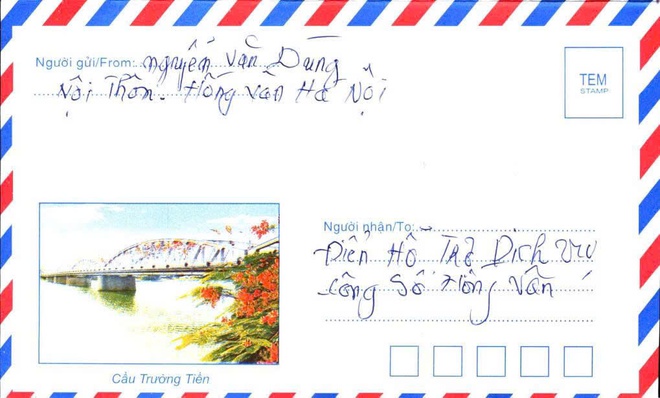 Người gửi/From: Nguyễn Văn Dũng
Nội Thôn - Hồng Vân Hà Nội
TEM
STAMP
Người nhận/To:
Điểm Hỗ Trợ Dịch vụ
công Số Hồng Vân
Cầu Trường Tiền